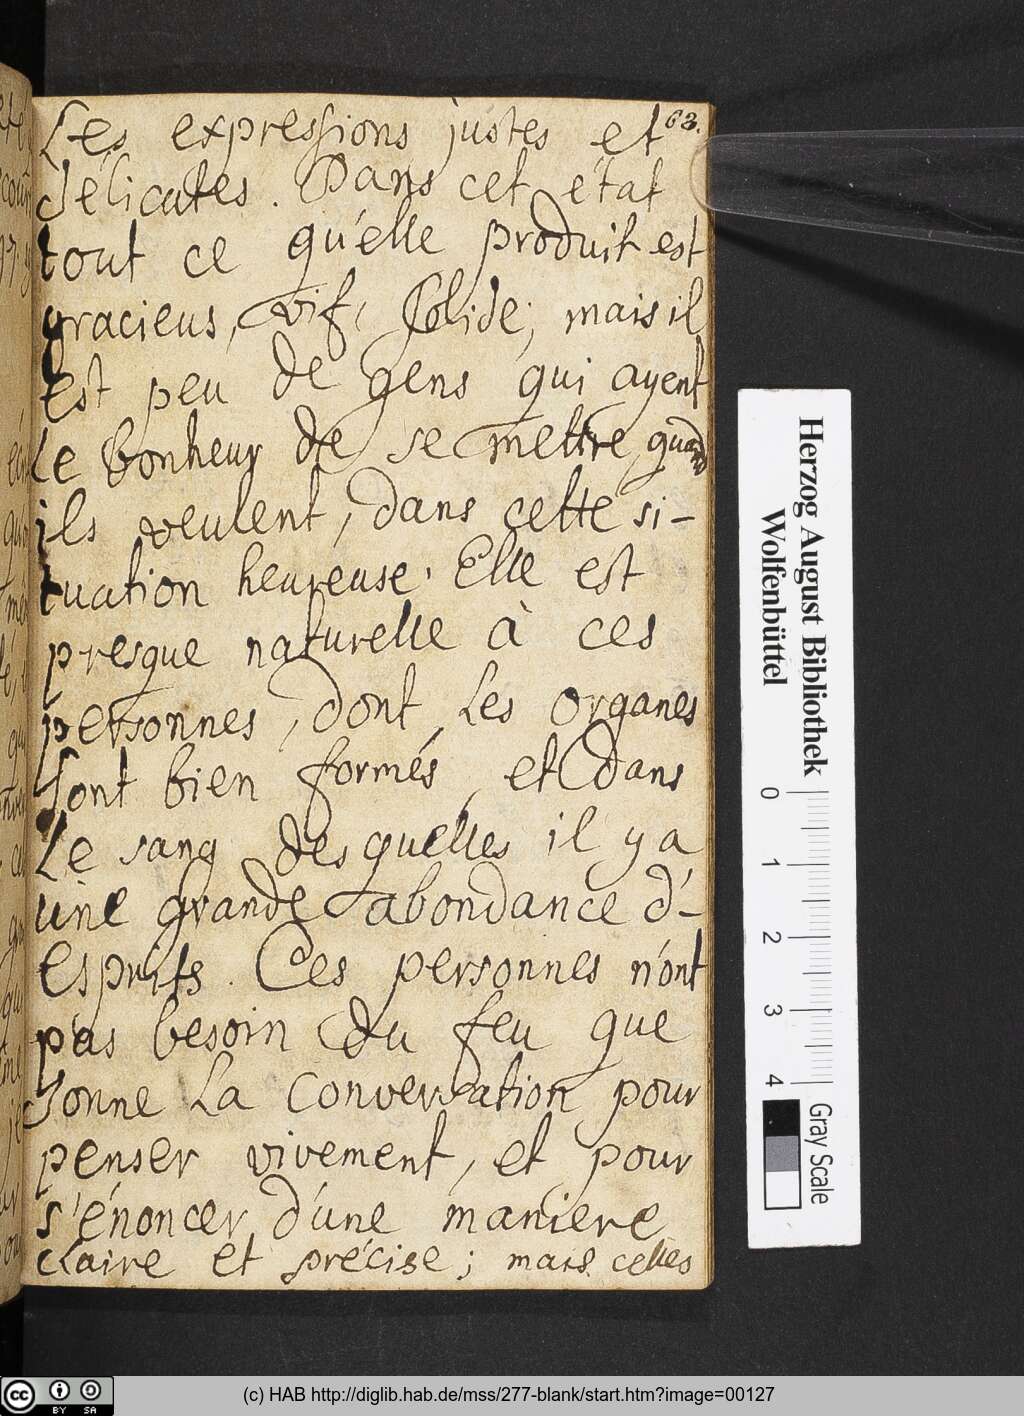 63.
Les expressions justes et
délicates. Dans cet état
tout ce qu'elle produit est
gracieus, vif, solide; mais il
est peu de gens qui ayent
le bonheur de se mettre, quand
ils veulent, dans cette si-
tuation heureuse. Elle est
presque naturelle à ces
personnes, dont les organes
sont bien formés, et dans
le sang desquelles il y a
une grande abondance d'-
esprits. Ces personnes n'ont
pas besoin du feu que
donne la conversation pour
penser vivement, et pour
s'énoncer d'une maniere
claire et précise; mais celles
Herzog August Bibliothek
Wolfenbüttel
0 1 2 3 4
Gray Scale
cc BY SA
(c) HAB http://diglib.hab.de/mss/277-blank/start.htm?image=00127